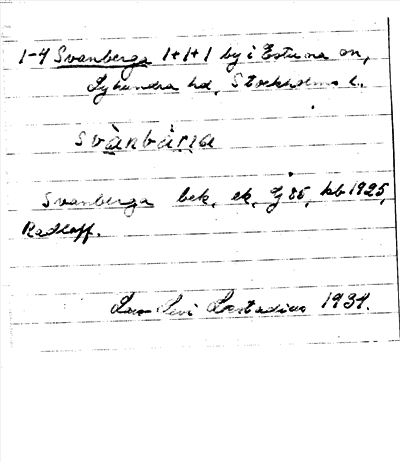 1-4 Svanberga 1+1+1 by i Estuna sn,
Lyhundra hd, Stockholms l.
svànbæ̀rıa
Svanberga bek, ek, Gj 85, kb 1925,
Radloff.
Lars Levi Læstadius 1934.